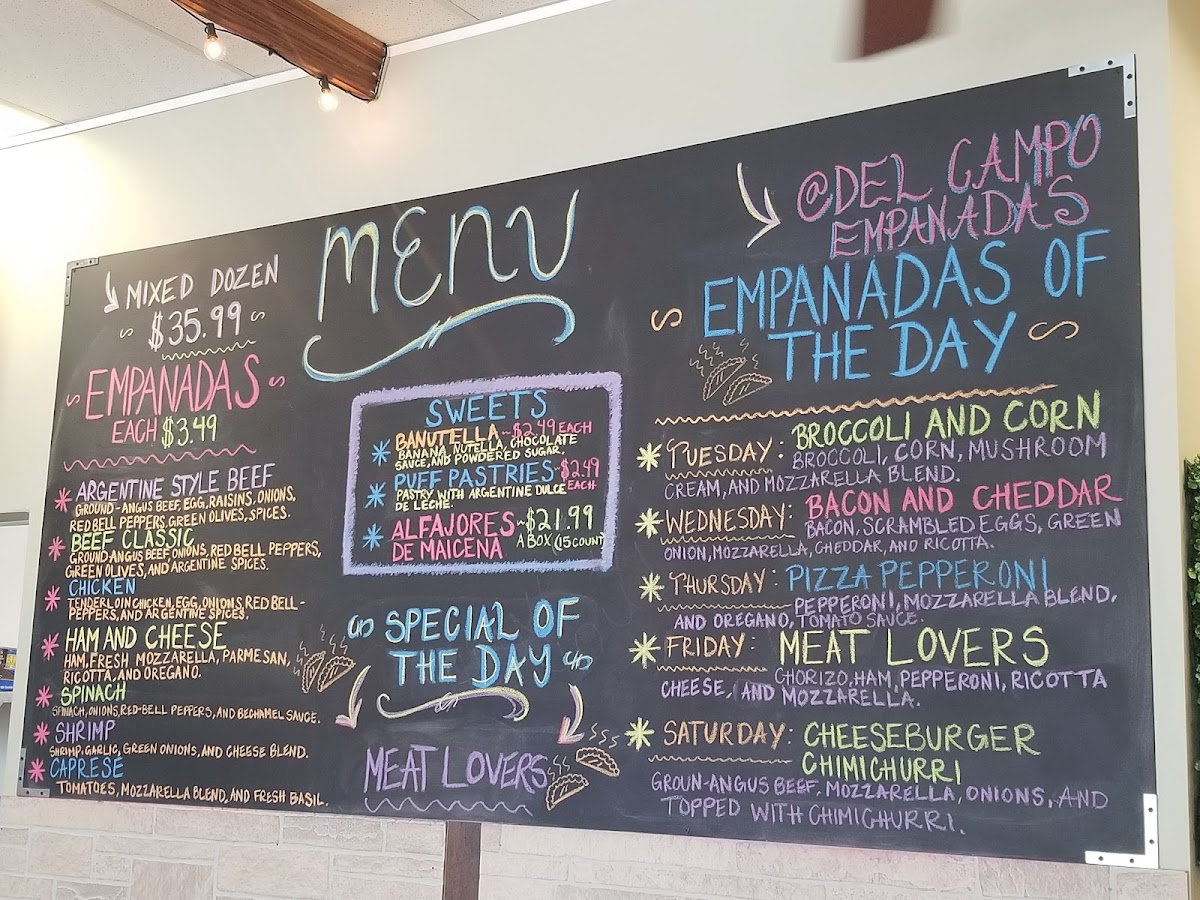 MIXED DOZEN
$35.99
EMPANADAS
EACH $3.49
ARGENTINE STYLE BEEF
GROUND-ANGUS BEEF, EGG, RAISINS, ONIONS,
RED BELL PEPPERS, GREEN OLIVES, SPICES.
BEEF CLASSIC
GROUND-ANGUS BEEF, ONIONS, RED BELL PEPPERS,
GREEN OLIVES, AND ARGENTINE SPICES.
CHICKEN
TENDERLOIN CHICKEN, EGG, ONIONS, RED BELL-
PEPPERS, AND ARGENTINE SPICES.
HAM AND CHEESE
HAM, FRESH MOZZARELLA, PARMESAN,
RICOTTA, AND OREGANO.
SPINACH
SPINACH, ONIONS, RED-BELL PEPPERS, AND BECHAMEL SAUCE.
SHRIMP
SHRIMP, GARLIC, GREEN ONIONS, AND CHEESE BLEND.
CAPRESÉ
TOMATOES, MOZZARELLA BLEND, AND FRESH BASIL.
MENU
SWEETS
BANUTELLA ~ $2.49 EACH
BANANA, NUTELLA, CHOCOLATE
SAUCE, AND POWDERED SUGAR.
PUFF PASTRIES-$2.49
EACH
PASTRY WITH ARGENTINE DULCE
DE LECHE.
ALFAJORES ~ $21.99
DE MAICENA
A BOX (15 COUNT
SPECIAL OF
THE DAY
MEAT LOVERS
@DEL CAMPO
EMPANADAS
EMPANADAS OF
THE DAY
TUESDAY: BROCCOLI AND CORN
BROCCOLI, CORN, MUSHROOM
CREAM, AND MOZZARELLA BLEND.
WEDNESDAY: BACON AND CHEDDAR
BACON, SCRAMBLED EGGS, GREEN
ONION, MOZZARELLA, CHEDDAR, AND RICOTTA.
THURSDAY: PIZZA PEPPERONI
PEPPERONI, MOZZARELLA BLEND,
AND OREGANO, TOMATO SAUCE.
FRIDAY: MEAT LOVERS
CHORIZO, HAM, PEPPERONI, RICOTTA
CHEESE, AND MOZZARELLA.
SATURDAY: CHEESEBURGER
CHIMICHURRI
GROUN-ANGUS BEEF, MOZZARELLA, ONIONS, AND
TOPPED WITH CHIMICHURRI.